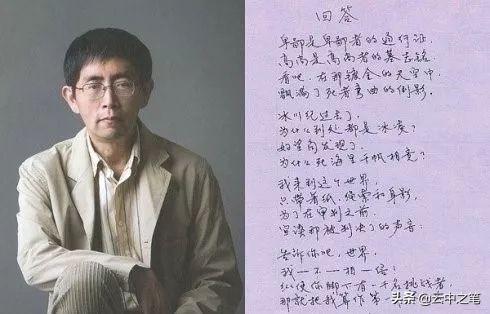 回答
卑鄙是卑鄙者的通行证
高尚是高尚者的墓志铭
看吧，在那镀金的天空中，
飘满了死者弯曲的倒影。
冰川纪过去了，
为什么到处都是冰凌？
好望角发现了，
为什么死海里千帆相竞？
我来到这个世界，
只带着纸、绳索和身影，
为了在审判之前，
宣读那被判决了的声音：
告诉你吧，世界，
我—不—相—信！
纵使你脚下有一千名挑战者，
那就把我算作第一
头条 @云中之笔